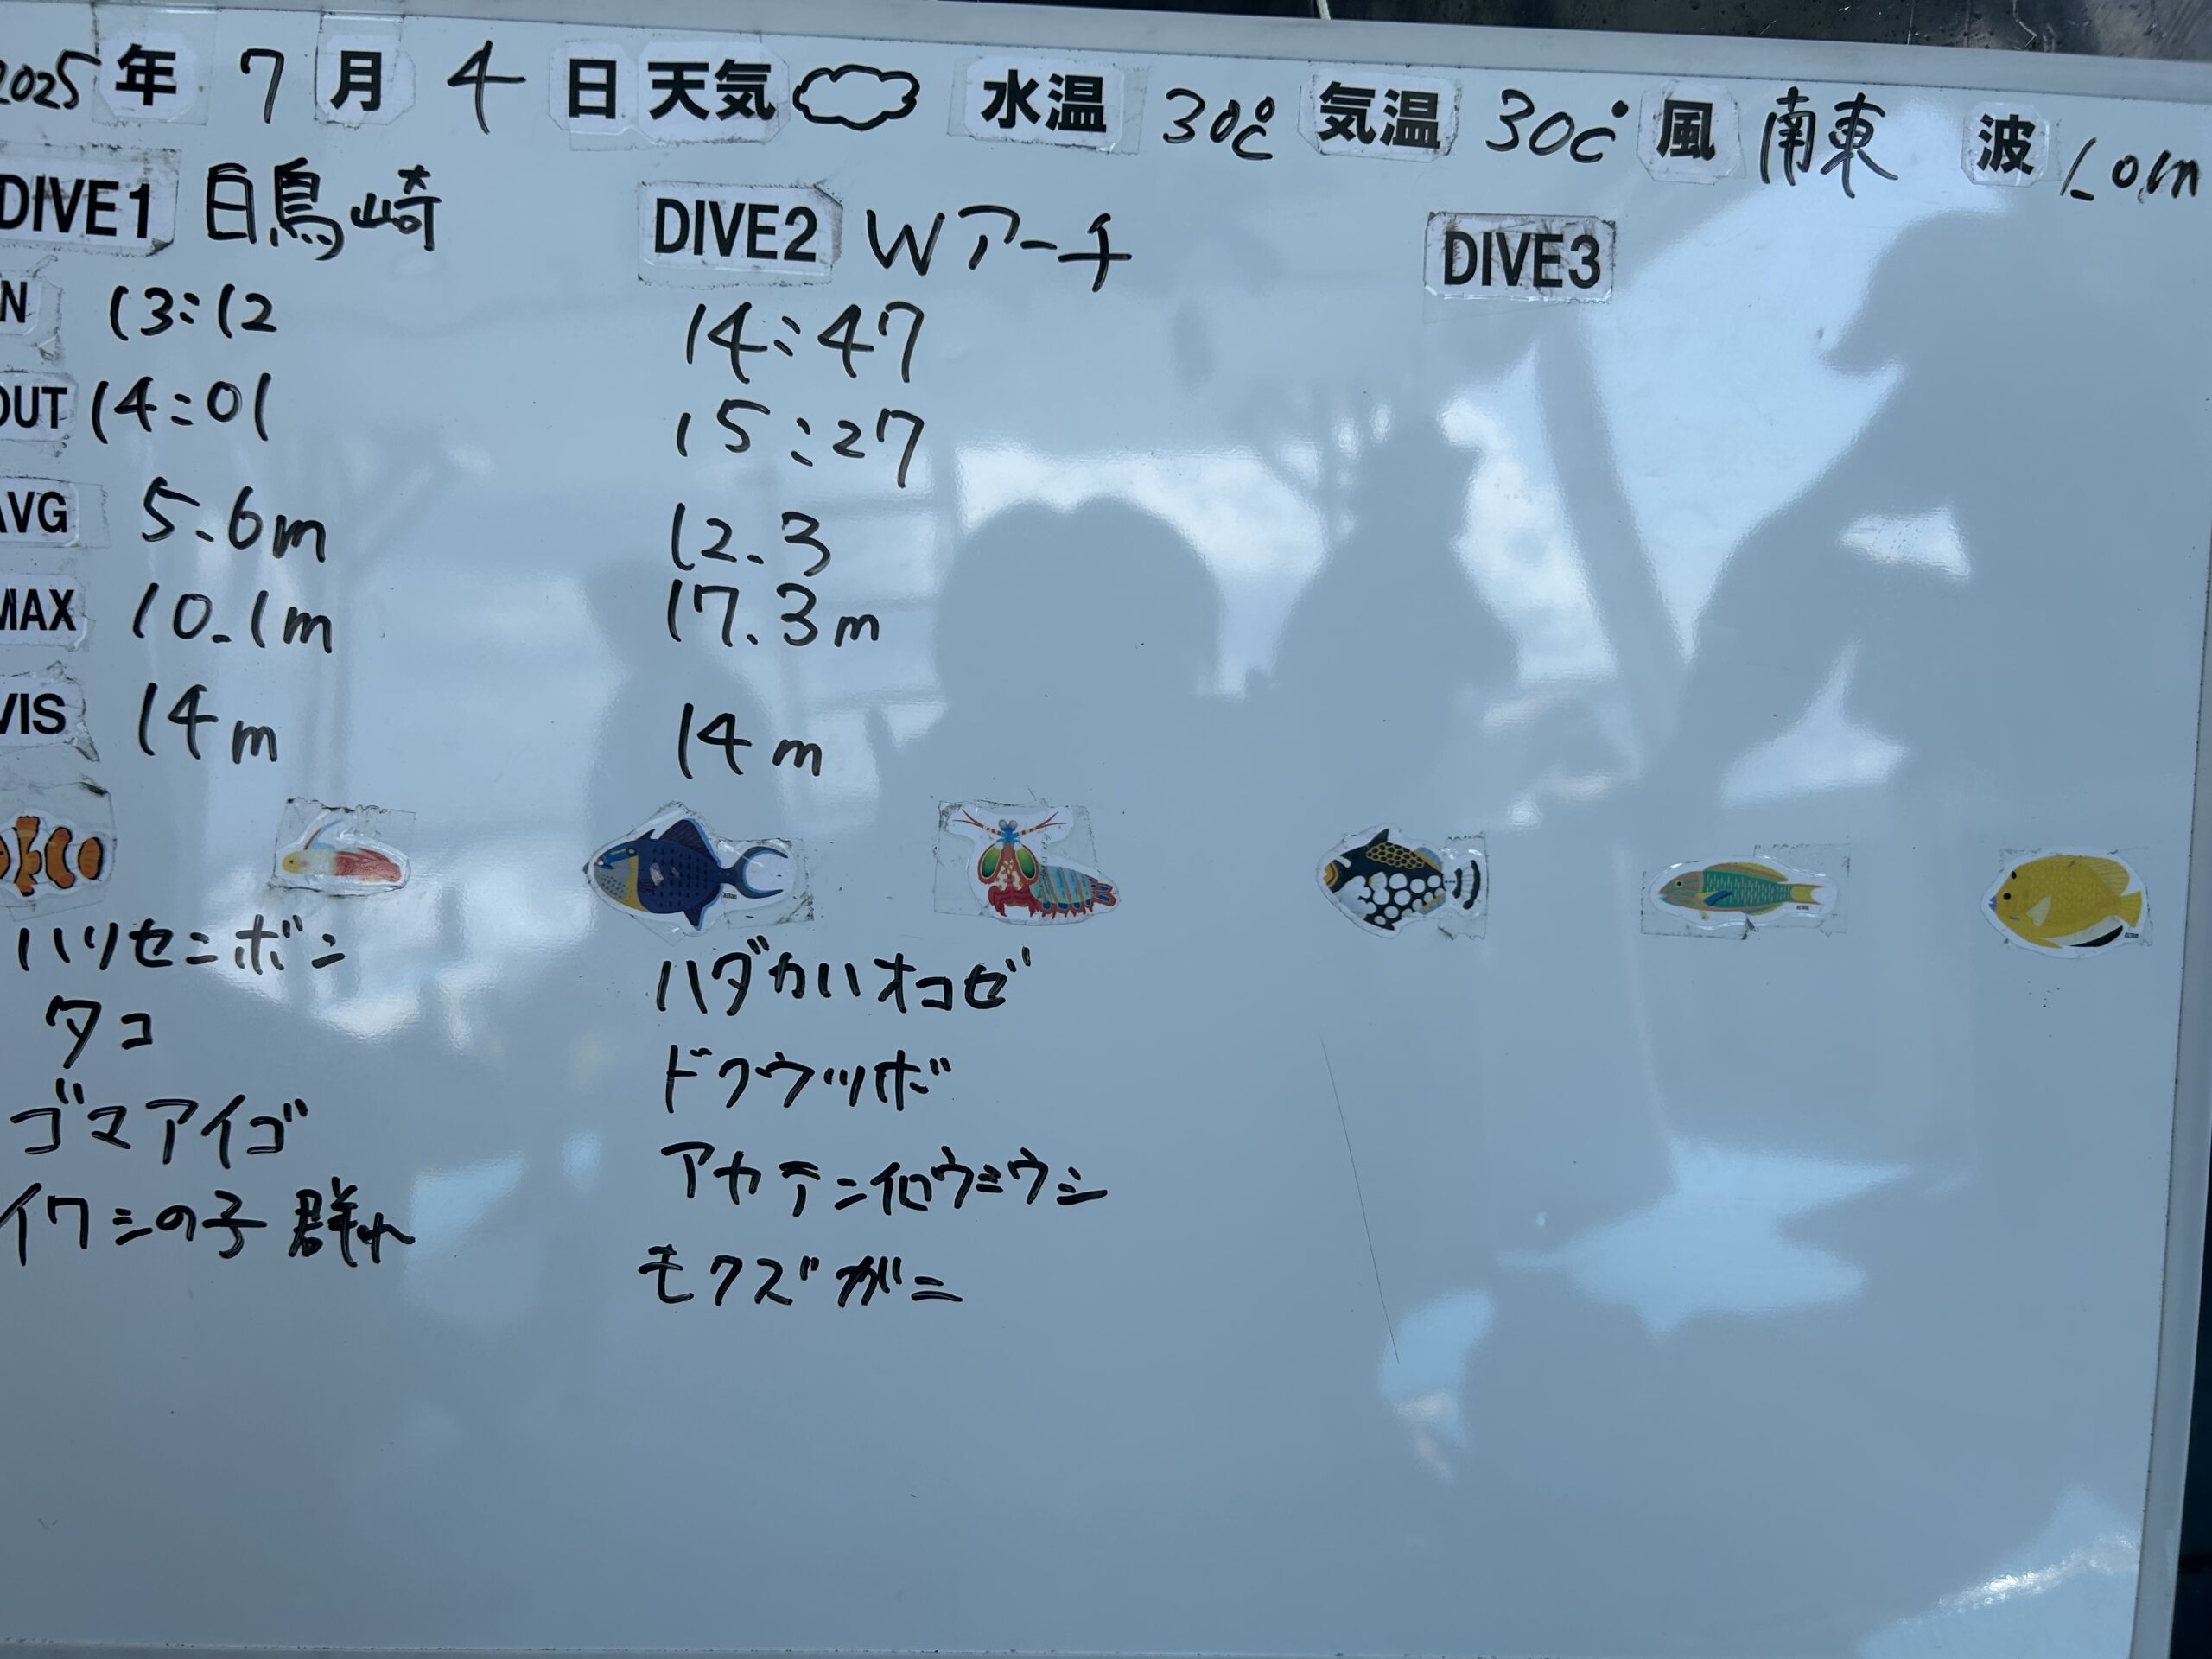 2025年 7月 4日 天気 水温 30℃ 気温 30℃ 風 南東 波
DIVE1 白鳥崎 DIVE2 Wアーチ DIVE3
IN 13:12 14:47
OUT 14:01 15:27
AVG 5.6m 12.3
MAX 10.1m 17.3m
VIS 14m 14m
ハリセンボン ハダカハオコゼ
タコ ドクウツボ
ゴマアイゴ アカテンイロウミウシ
イワシの子 群れ モクズガニ